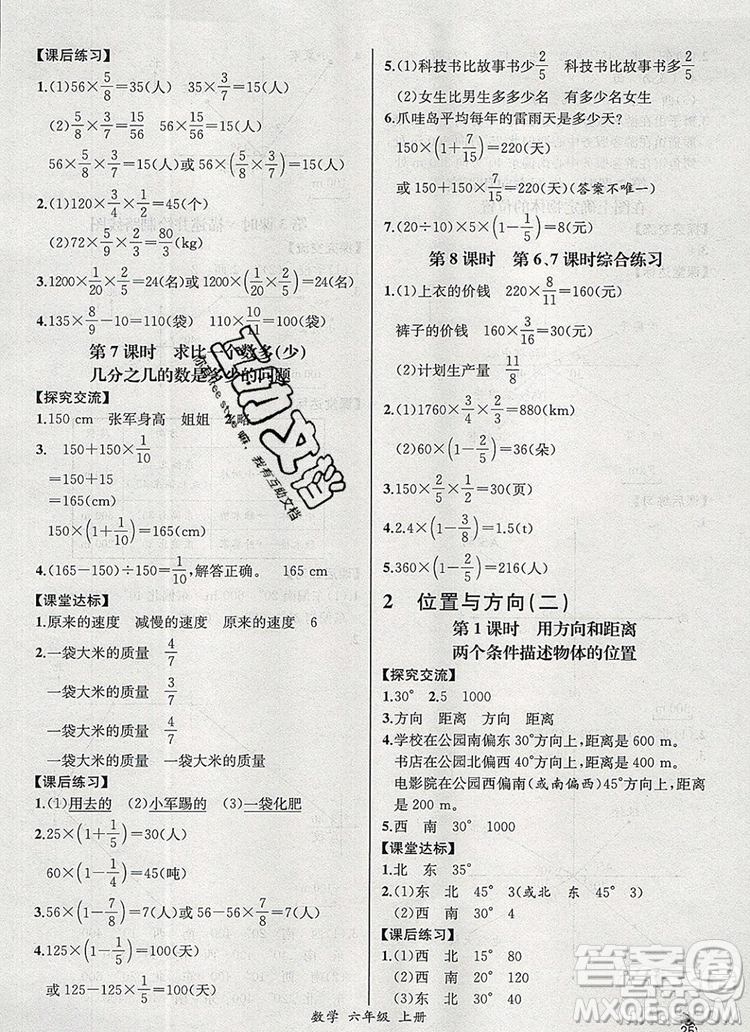 【课后练习】
1.(1)56×5/8=35(人) 56×5/8=35(人)
(2)5/8×9/10=9/16 56×9/16
56×5/8×9/10(人)或56×(5/8×9/10)(人)
2.(1)120×3/4×2/3(个)
(2)72×5/9×2/3=80/3(kg)
3.1200×1/5×1/10=24(名)或1200×(1/5×1/10)=24(名)
4.135×22/27=110(袋) 110×10/11=100(袋)
第7课时 求比一个数多(少)
几分之几的数是多少的问题
【探究交流】
1.150 cm 张军身高 姐姐 2.略
3. 150+150×1/10
=150+15
=165(cm)
150×(1+1/10)=165(cm)
4.(165-150)÷150=1/10,解答正确。 165 cm
【课堂达标】
1.原来的速度 减慢的速度 原来的速度 6
2.一袋大米的质量 4/7
一袋大米的质量 3/7
一袋大米的质量 4/7
一袋大米的质量 一袋大米的质量
【课后练习】
1.(1)用去的 (2)小军踢的 (3)一袋化肥
2.25×(1+1/5)=30(人)
60×(1-1/4)=45(吨)
3.56×(1-7/8)=7(人)或56-56×7/8=7(人)
4.125×(1-1/5)=100(天)
或125-125×1/5=100(天)
5.(1)科技书比故事书少2/5 科技书比故事书多2/5
(2)女生比男生多多少名 有多少名女生
6.爪哇岛平均每年的雷雨天是多少天?
150×(1+7/15)=220(天)
或150+150×7/15=220(天)(答案不唯一)
7.(20÷10)×5×(1-1/5)=8(元)
第8课时 第6、7课时综合练习
1.(1)上衣的价钱 220×8/11=160(元)
裤子的价钱 160×3/16=30(元)
(2)计划生产量 11/8
2.(1)1760×3/4×2/3=880(km)
(2)60×(1-2/5)=36(朵)
3.150×2/5×1/2=30(页)
4.2.4×(1-3/8)=1.5(t)
5.360×(1-2/5)=216(元)
2 位置与方向(二)
第1课时 用方向和距离
两个条件描述物体的位置
【探究交流】
1.30° 2.5 1000
3.方向 距离 方向 距离
4.学校在公园南偏东30°方向上,距离是600 m。
书店在公园北偏西60°方向上,距离是400 m。
电影院在公园西偏南(或南偏西)45°方向上,
距离是200 m。
5.西 南 30° 1000
【课堂达标】
1.北 东 35°
2.(1)东 北 45° 3 (2)东 北 45° 3
(2)西 南 30° 4
【课后练习】
1.(1)西 北 15° 80
(2)北 西 20° 120
(3)南 西 12° 100
数学 六年级 上册
互动文档
我有互动文档
答案圈